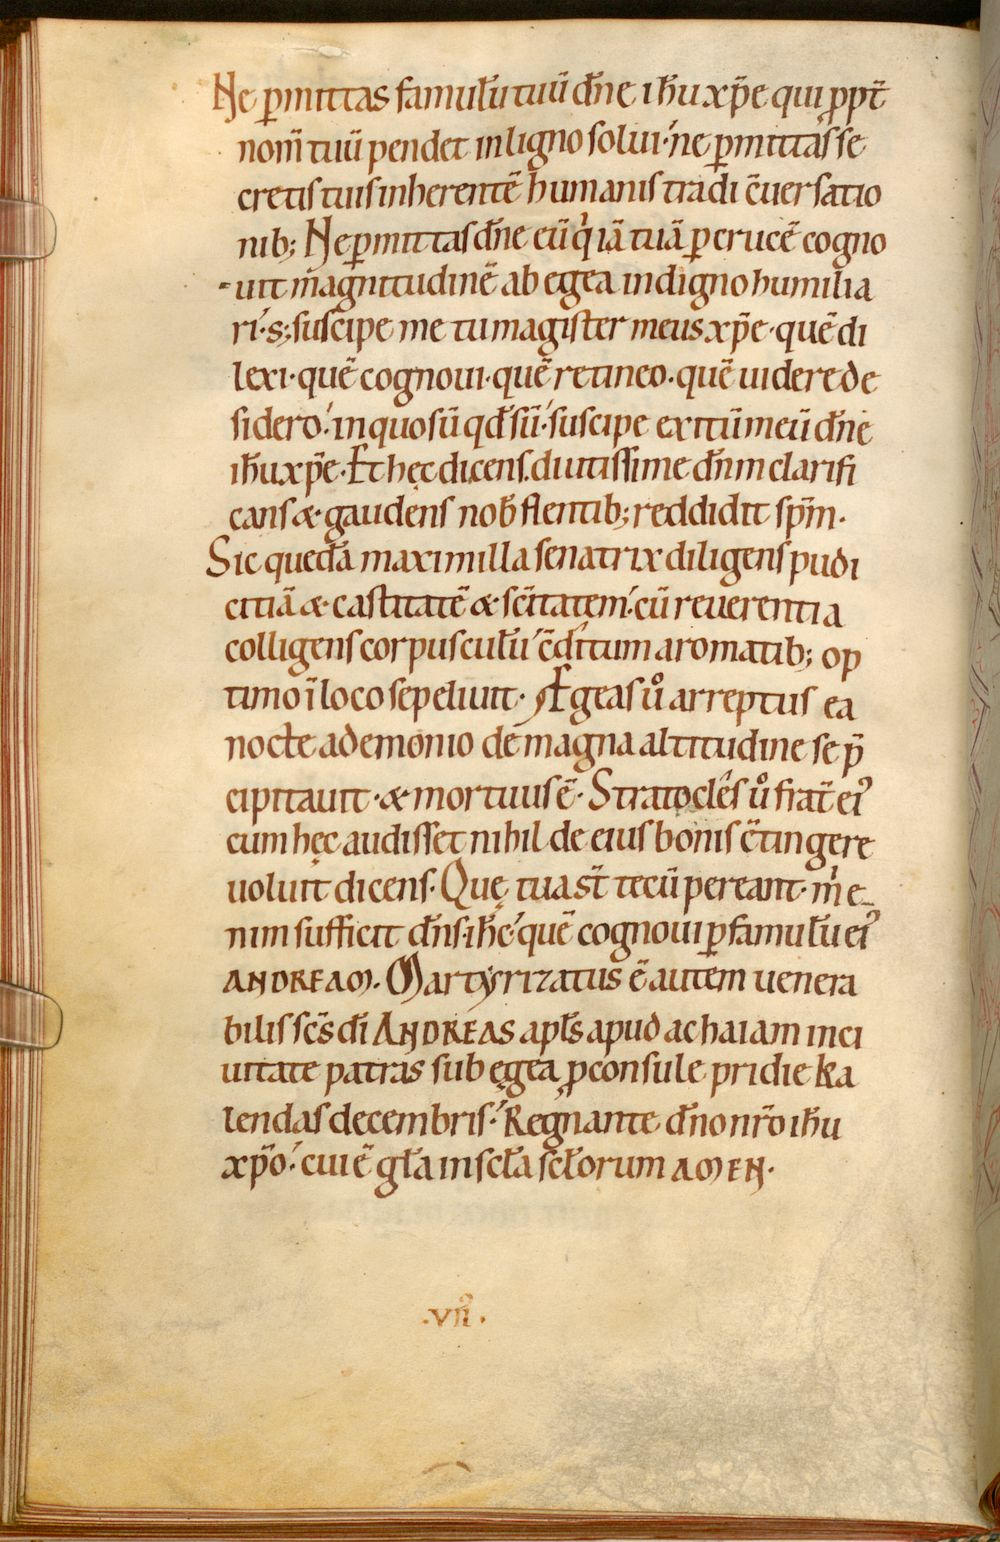 Ne p̄mittas famulū tuū dn̄e ihu xp̄e qui ꝓpt̄
nom̄ tuū pendet in ligno solui· ne p̄mittas se
cretis tuis inherentē humanis tradi c̄uersatio
nib; Ne p̄mittas dn̄e eū qͥ iā tuā p crucē cogno
uit magnitudinē ab egea indigno humilia
ri·s; suscipe me tu magister meus xp̄e· quē di
lexi· quē cognoui· quē retineo· quē uidere de
sidero· in quo sū qd̄ sū· suscipe exitū meū dn̄e
ihu xp̄e· Et hęc dicens. diutissime dn̄m clarifi
cans &· gaudens nob̄ flentib; reddidit sp̄m·
Sic quedā maximilla senatrix diligens pudi
citiā &· castitatē &· sc̄itatem· cū reuerentia
colligens corpusculū c̄ditum aromatib; op
timo ī loco sepeliuit· Ægeas uͦ arreptus ea
nocte a demonio de magna altitudine se p̄
cipitauit· &· mortuus ē· Stratocles uͦ frat̄ ei᾽
cum hęc audisset nihil de eius bonis c̄tingere
uoluit dicens· Quę tua st̄ tecū pereant· mͥ e
nim sufficit dn̄s· ihc̄ quē cognoui p famulū ei᾽
ANDREAM. Martyrizatus ē autem uenera
bilis sc̄s dī ANDREAS apl̄s apud achaiam in ci
uitate patras sub ęgea ꝓconsule pridie ka
lendas decembris· Regnante dn̄o nr̄o ihu
xp̄o· cui ē gl̄a in scl̄a scl̄orum AMEN·
·VII·